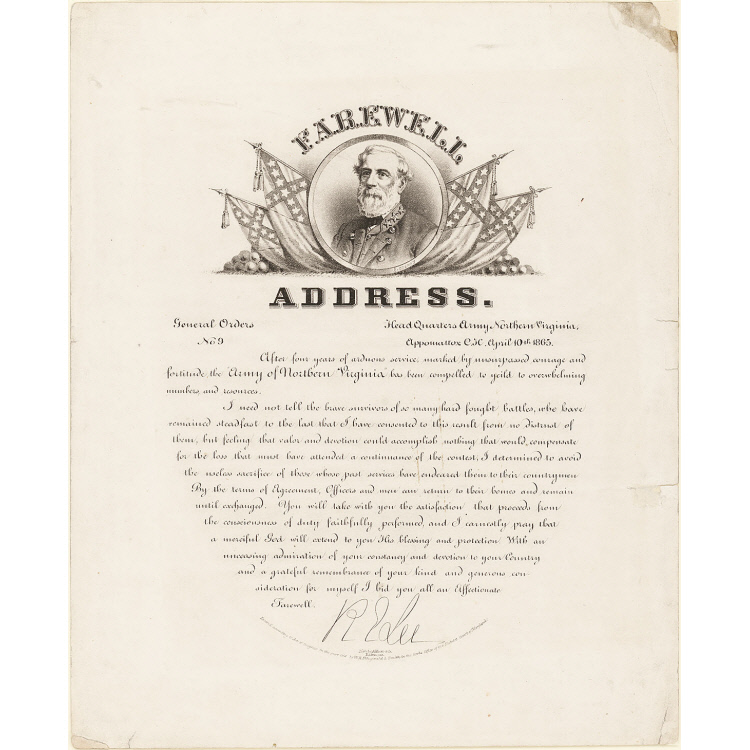 FAREWELL
ADDRESS.
General Orders
No 9
Head Quarters Army Northern Virginia,
Appomattox C.H. April 10th 1865.
After four years of arduous service, marked by unsurpassed courage and
fortitude the Army of Northern Virginia has been compelled to yeild to overwhelming
numbers and resources.
I need not tell the brave survivors of so many hard fought battles, who have
remained steadfast to the last that I have consented to this result from no distrust of
them, but feeling that valor and devotion could accomplish nothing that would compensate
for the loss that must have attended a continuance of the contest, I determined to avoid
the useless sacrifice of those whose past services have endeared them to their countrymen
By the terms of Agreement, Officers and men can return to their homes and remain
until exchanged. You will take with you the satisfaction that proceeds from
the consciousness of duty faithfully performed, and I earnestly pray that
a merciful God will extend to you His blessing and protection. With an
unceasing admiration of your constancy and devotion to your Country
and a grateful remembrance of your kind and generous con-
sideration for myself I bid you all an Affectionate
Farewell.
R E Lee